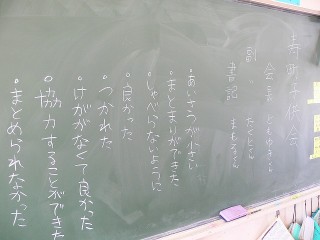 寿町子供会
会長 ともゆきくん
副 〃 たくとくん
書記 まもるくん
・あいさつが小さい
・まとまりができた
・しゃべらないように
・良かった
・つかれた
・けががなくて良かった
・協力することができた
・まとめられなかった